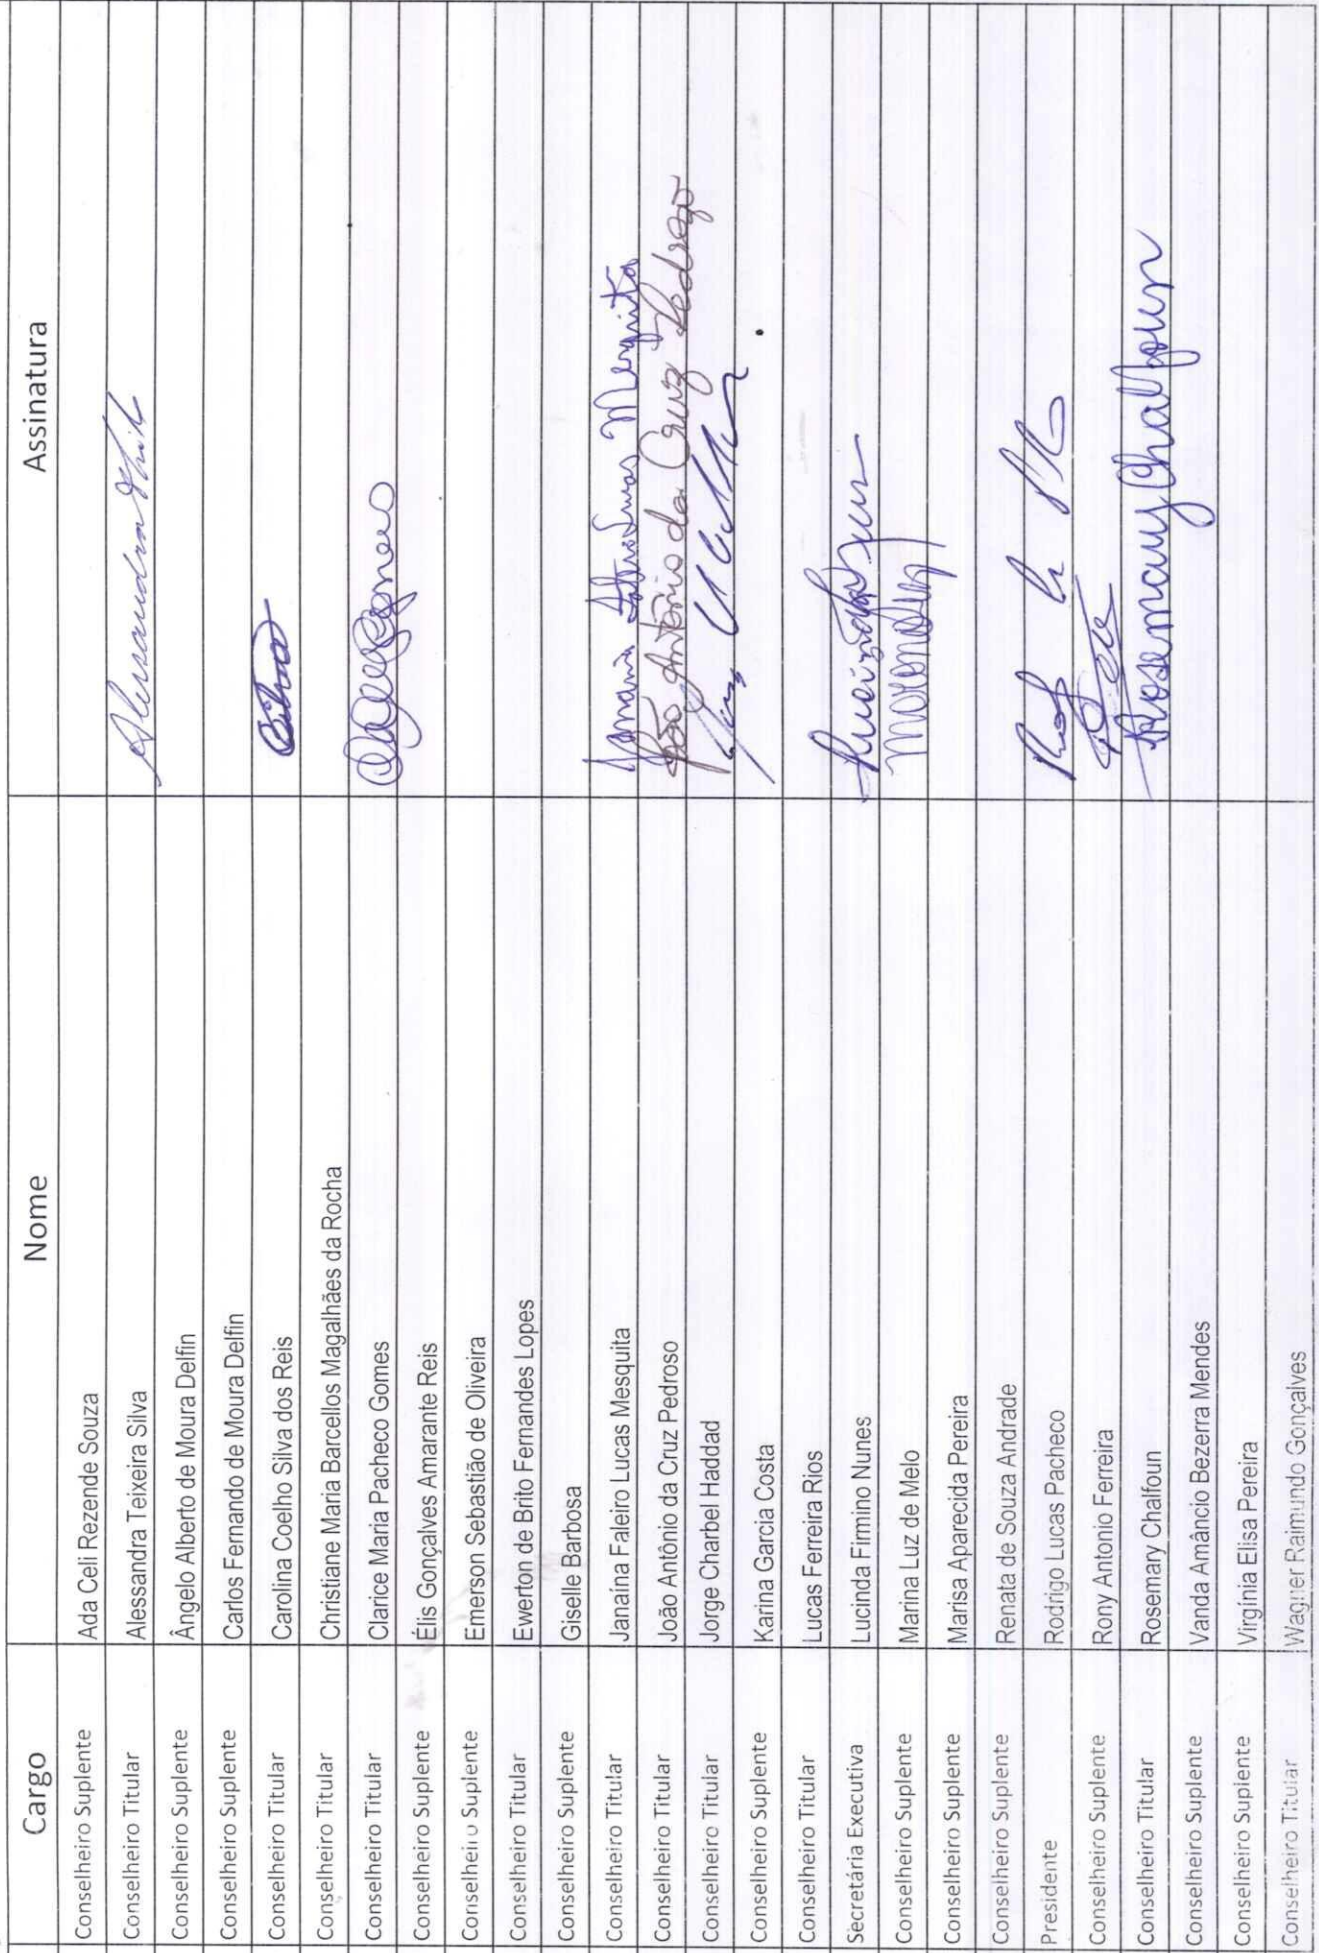 Cargo Nome Assinatura
Conselheiro Suplente Ada Celi Rezende Souza
Conselheiro Titular Alessandra Teixeira Silva Alessandra
Conselheiro Suplente Ângelo Alberto de Moura Delfin
Conselheiro Suplente Carlos Fernando de Moura Delfin
Conselheiro Titular Carolina Coelho Silva dos Reis
Conselheiro Titular Christiane Maria Barcellos Magalhães da Rocha
Conselheiro Titular Clarice Maria Pacheco Gomes
Conselheiro Suplente Élis Gonçalves Amarante Reis
Conselheiro Suplente Emerson Sebastião de Oliveira
Conselheiro Titular Ewerton de Brito Fernandes Lopes
Conselheiro Suplente Giselle Barbosa
Conselheiro Titular Janaína Faleiro Lucas Mesquita Janaína Faleiro Lucas Mesquita
Conselheiro Titular João Antônio da Cruz Pedroso João Antônio da Cruz Pedroso
Conselheiro Titular Jorge Charbel Haddad
Conselheiro Suplente Karina Garcia Costa
Conselheiro Titular Lucas Ferreira Rios
Secretária Executiva Lucinda Firmino Nunes
Conselheiro Suplente Marina Luz de Melo
Conselheiro Suplente Marisa Aparecida Pereira
Conselheiro Suplente Renata de Souza Andrade
Presidente Rodrigo Lucas Pacheco
Conselheiro Suplente Rony Antonio Ferreira
Conselheiro Titular Rosemary Chalfoun Rosemary Chalfoun
Conselheiro Suplente Vanda Amâncio Bezerra Mendes
Conselheiro Suplente Virginia Elisa Pereira
Conselheiro Titular Wagner Raimundo Gonçalves